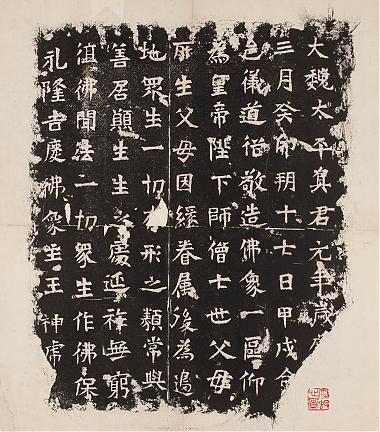 大魏太平真君元年歲
三月癸卯朔十七日甲戌合
邑儀道俗敬造佛象一區仰
為皇帝陛下師僧七世父母
所生父母因緣眷属後為邊
地眾生一切有形之類常與
善居願生生之慶延祚無窮
值佛聞法一切眾生作佛保
礼隆吉慶佛眾生王神虎